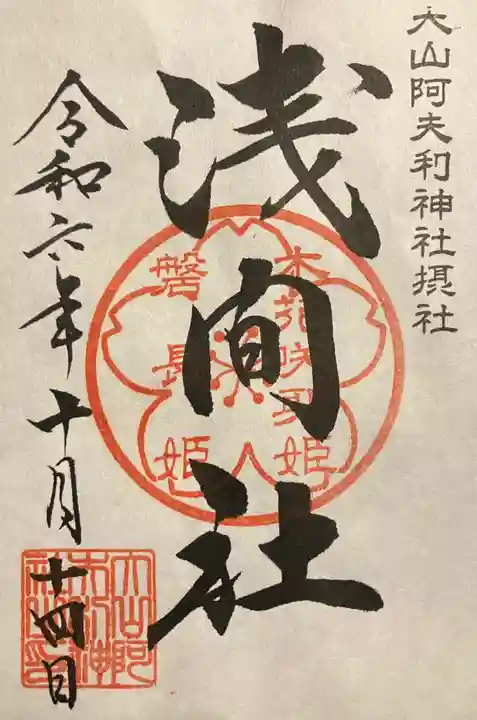 大山阿夫利神社摂社
浅間社
木花咲耶姫
磐長姫
令和六年十月十四日
大山阿
夫利神
社之印